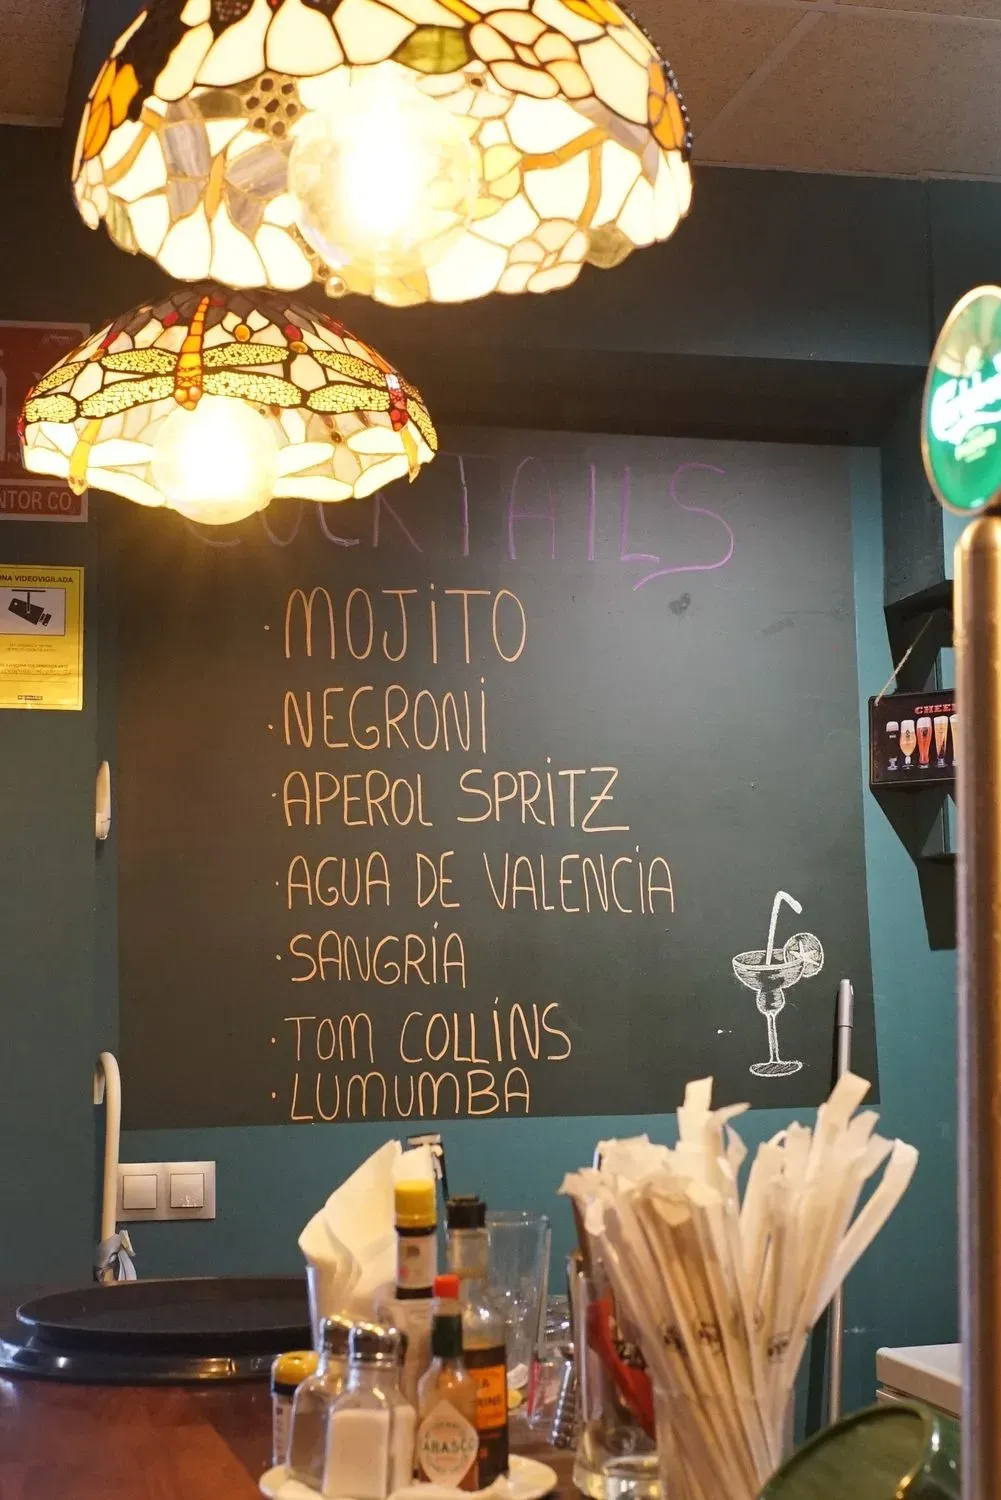 COCKTAILS
· MOJITO
· NEGRONI
· APEROL SPRITZ
· AGUA DE VALENCIA
· SANGRÍA
· TOM COLLINS
· LUMUMBA
NTOR CO.
NA VIDEOVIGILADA
CHEE
TABASCO